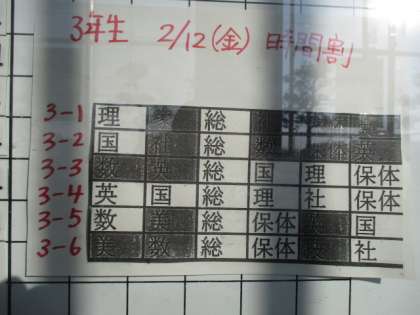 3年生 2/12(金) 時間割
3-1 理 総
3-2 国 社 総 数 保体 英
3-3 数 英 総 国 理 保体
3-4 英 国 総 理 社 保体
3-5 数 美 総 保体 英 国
3-6 美 数 総 保体 社